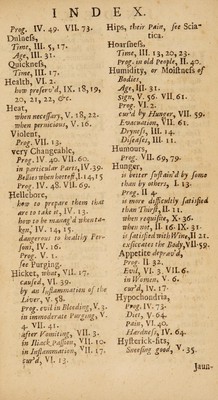 INDEX.
Prog. IV. 49. VII. 73.
Dulness,
Time, III. 5, 17.
Age, III. 31.
Quickness,
Time, III. 17.
Health, VI. 2.
how preserv'd, IX. 18, 19,
20, 21, 22, &c.
Heat,
when necessary, V. 18, 22.
when pernicious, V. 16.
Violent,
Prog. VII. 13.
very Changeable,
Prog. IV. 40. VII. 60.
in particular Parts, IV. 39.
Bodies when hereof, I. 14, 15
Prog. IV. 48. VII. 69.
Hellebore,
how to prepare them that
are to take it, IV. 13.
how to be manag'd when ta-
ken, IV. 14, 15.
dangerous to healthy Per-
sons, IV. 16.
Prog. V. 1.
see Purging.
Hicket, what, VII. 17.
caused, VI. 39.
by an Inflammation of the
Liver, V. 58.
Prog. evil in Bleeding, V. 3.
in immoderate Purging, V.
4. VII. 41.
after Vomiting, VII. 3.
in Iliack Passion, VII. 10.
in Inflammation, VII. 17.
cur'd, VI. 13.
Hips, their Pain, see Scia-
tica.
Hoarsness,
Time, III. 13, 20, 23.
Prog. in old People, II. 40.
Humidity, or Moistness of
Bodies.
Age, III. 31.
Sign, V. 56. VII. 61.
Prog. VI. 2.
cur'd by Hunger, VII. 59.
Evacuation, VII. 61.
Dryness, III. 14.
Diseases, III. 11.
Humours,
Prog. VII. 69, 79.
Hunger,
is better sustain'd by some
than by others, I. 13.
Prog. II. 4.
is more difficultly satisfied
than Thirst, II. 11.
when requisite, X. 36.
when not, II. 16. IX. 31.
is satisfied with Wine, II 21.
exsiccates the Body, VII. 59.
Appetite deprav'd,
Prog. II. 32.
Evil, VI. 3. VII. 6.
in Women, V. 6.
cur'd, IV. 17.
Hypochondria,
Prog. IV. 73.
Diet, V. 64.
Pain, VI. 40.
Hardness, IV. 64.
Hysterick-fits,
Sneesing good, V. 35.
Jaun-